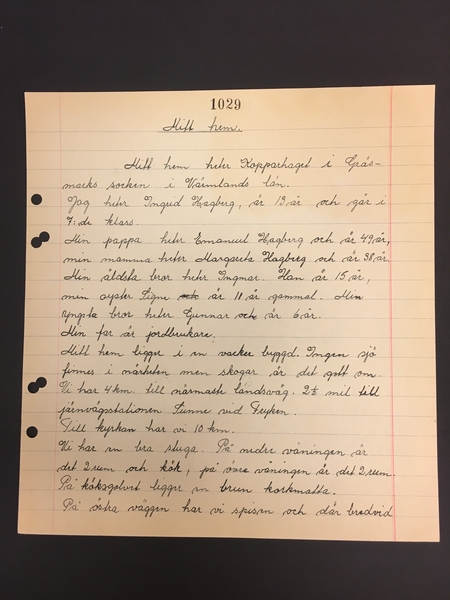 1029
Mitt hem.
Mitt hem heter Kopparhaget i Gräs-
marks socken i Värmlands län.
Jag heter Ingrid Hagberg, är 13 år och går i
7:de klass.
Min pappa heter Emanuel Hagberg och är 49 år,
min mamma heter Margareta Hagberg och är 38 år.
Min äldsta bror heter Ingmar. Han är 15 år,
min syster Signe och är 11 år gammal. Min
yngsta bror heter Gunnar och är 6 år.
Min far är jordbrukare.
Mitt hem ligger i en vacker bygd. Ingen sjö
finnes i närheten men skogar är det gott om.
Vi har 4 km. till närmaste landsväg. 2½ mil till
järnvägsstationen Sunne vid Fryken.
Till kyrkan har vi 10 km.
Vi har en bra stuga. På nedre våningen är
det 2 rum och kök, på övre våningen är det 2 rum.
På köksgolvet ligger en brun korkmatta.
På östra väggen har vi spisen och där bredvid